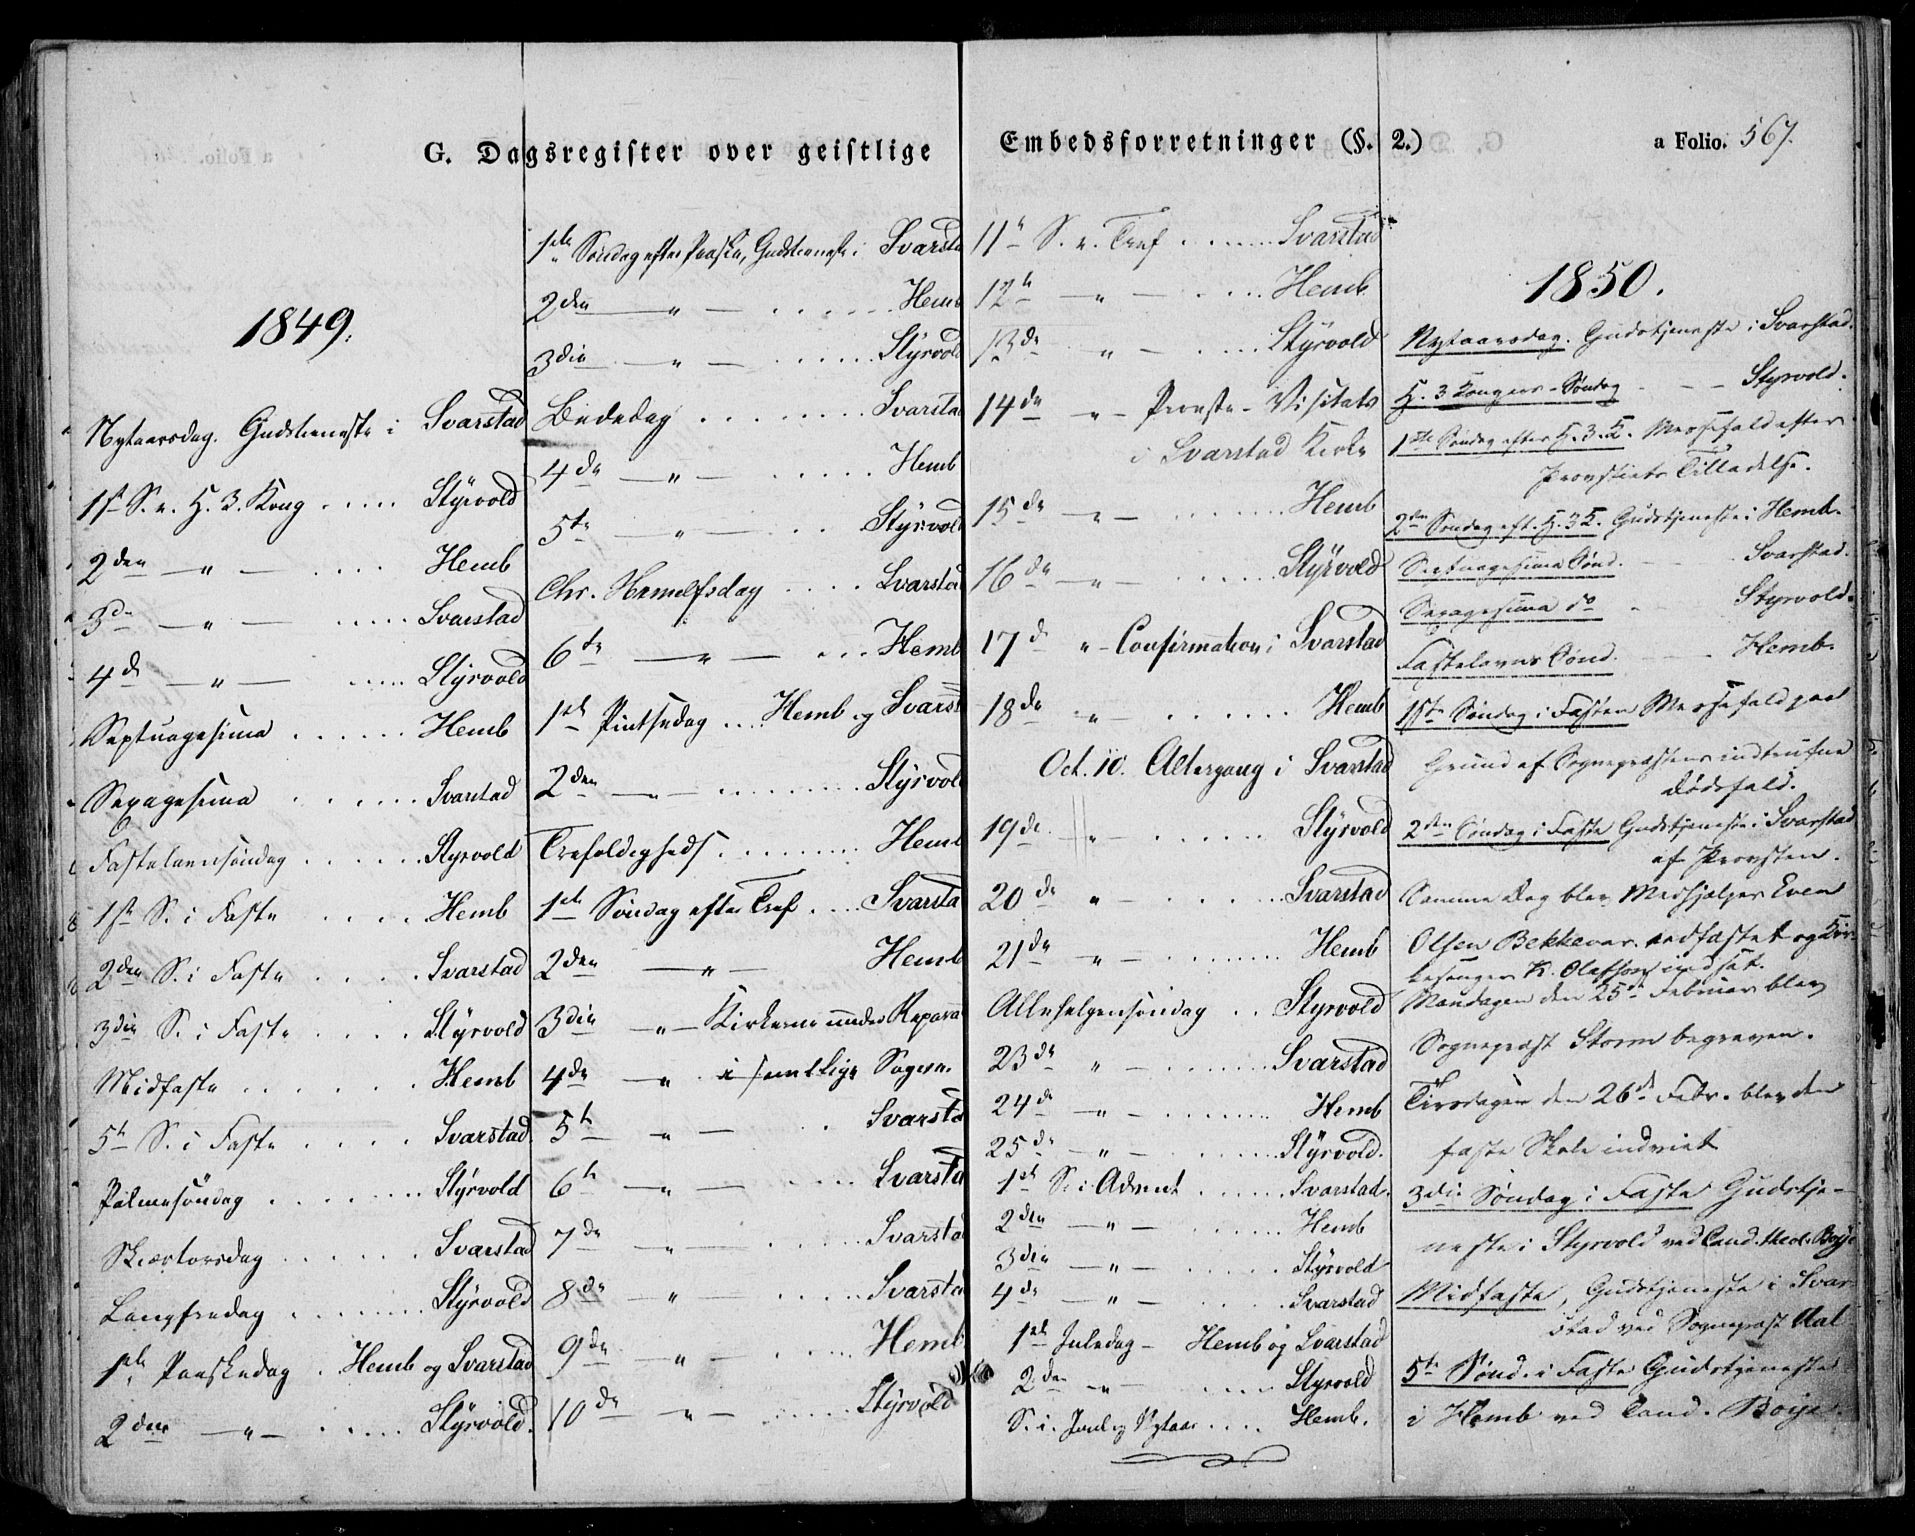 G. Dagsregister over geistlige
Embedsforretninger (§. 2.)
a Folio. 567.
1849.
Nytaarsdag. Gudstieneste i Svarstad
1ste S. e. H. 3. Kong ..... Styrvold
2den — " — .... Hemb
3de — " — ..... Svarstad
4de — " — ..... Styrvold
Septuagesima ...... Hemb
Sexagesima ...... Svarstad
Fastelavnsøndag ...... Styrvold
1ste S. i Faste .... Hemb
2den S. i Faste .... Svarstad
3die S. i Faste .... Styrvold
Midfaste ...... Hemb
5te S. i Faste .... Svarstad
Palmesøndag ...... Styrvold
Skiærtorsdag ...... Svarstad
Langfredag ...... Styrvold
1ste Paaskedag . Hemb og Svarstad
2den — " — ..... Styrvold.
1ste Søndag efter Paaske, Gudstieneste i Svarsta
2den — " — ...... Hemb
3die — " — ...... Styrvold
Bededag ....... Svarsta
4de — " — ..... Hemb
5te — " — .. Styrvold
Chr. Hemelfsdag .... Svarstad
6te — " — ... Hemb
1ste Pintsedag ... Hemb og Svarst
2den — " — ........ Styrvold
Trefoldigheds ......... Hemb
1ste Søndag efter Tref .... Svarsta
2den — " — Hemb
3die — " — Kirkerne under Repara
4de — " i samtlige Sogne.
5te — " — . Svarsta
6te — " — ..... Svarsta
7de — " — ..... Svarstad
8de — " — ..... Svarstad
9de — " — ..... Hemb
10de — " — ..... Styrvold
11te S. e. Tref ....... Svarstad
12te — " — .... Hemb
13de " — .... Styrvold
14de " — Provste-Visitats
i Svarstad Kirke
15de — " — ....... Hemb
16de — " — ..... Styrvold
17de " — Confirmation i Svarstad
18de " ...... Hemb
Oct. 10. Altergang i Svarstad
19de " — ..... Styrvold
20de " — ..... Svarstad
21de " — ....... Hemb
Allehelgensøndag .. Styrvold
23de " — ...... Svarstad
24de — " — ....... Hemb
25de — " — ....... Styrvold.
1ste S. i Advent ...... Svarstad.
2den — " — ..... Hemb
3die — " — ..... Styrvold
4de — " — ..... Svarstad
1ste Juledag — Hemb og Svarstad
2den — " — ..... Styrvold
S. i. Juul og Nytaar .... Hemb.
1850.
Nytaarsdag. Gudstjeneste i Svarstad.
H. 3 Kongers-Søndag — — Styrvold.
1ste Søndag efter H. 3. K. Messefald efter
Provstiets Tilladelse.
2den Søndag eft. H. 3 K. Gudstjeneste i Hemb.
Septuagesima Sønd. — Svarstad.
Sexagesima do — Styrvold.
Fastelavns Sønd. — Hemb.
1ste Søndag i Fasten Messefald paa
Grund af Sognepræstens indtrufne
Dødsfald.
2den Søndag i Faste Gudstjeneste i Svarstad
af Provsten.
Samme Dag blev Medhjelper Even
Olsen Bekkevar. edfæstet og Kir-
kesanger K. Olafsen indsat.
Mandagen den 25de Februar blev
Sognepræst Storm begraven.
Tirsdagen den 26de Febr. blev den
faste Skole indviet
3die Søndag i Faste Gudstje-
neste i Styrvold ved Cand. theol. Boije
Midfaste, Gudstjeneste i Svar-
stad ved Sognepræst Aal
5te Sønd. i Faste Gudstjeneste
i Hemb ved Cand. Boije.